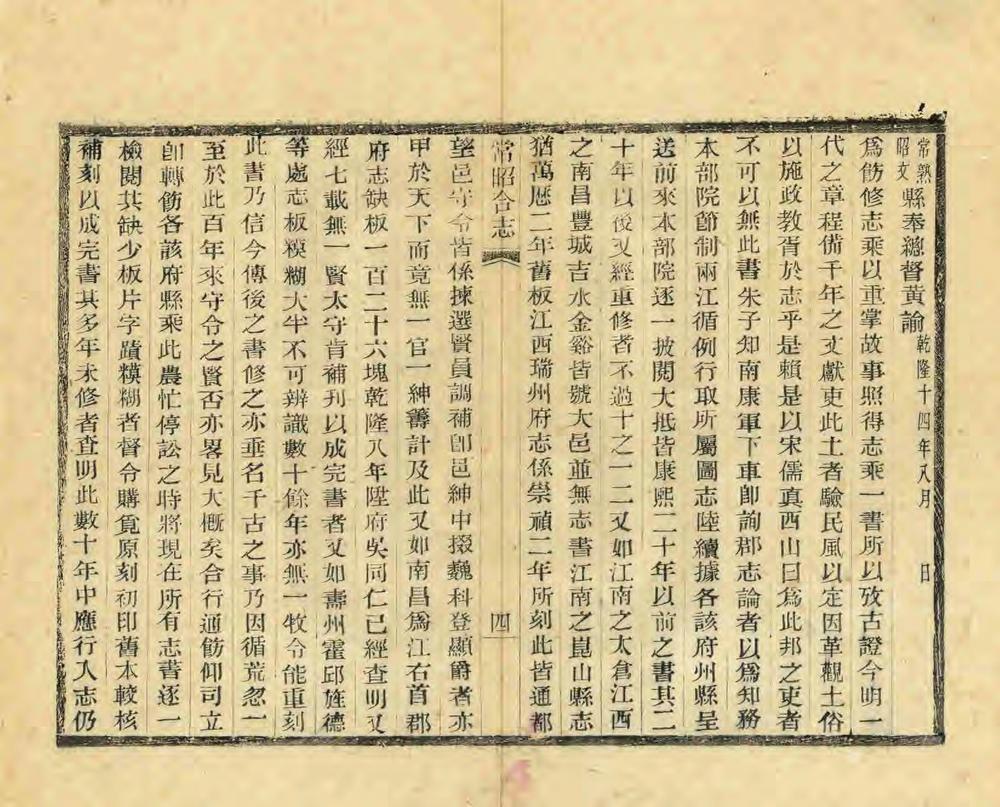 常熟昭文縣奉總督黃諭乾隆十四年八月 日
為飭修志乘以重掌故事照得志乘一書所以攷古證今明一
代之章程備千年之文獻吏此土者驗民風以定因革觀土俗
以施政教胥於志乎是賴是以宋儒真西山曰為此邦之吏者
不可以無此書朱子知南康軍下車卽詢郡志論者以為知務
本部院節制兩江循例行取所屬圖志陸續據各該府州縣呈
送前來本部院逐一披閱大抵皆康熙二十年以前之書其二
十年以後又經重修者不過十之一二又如江南之太倉江西
之南昌豐城吉水金谿皆號大邑並無志書江南之崑山縣志
猶萬厯二年舊板江西瑞州府志係崇禎二年所刻此皆通都
常昭合志 四
望邑守令皆係揀選賢員調補卽邑紳中掇巍科登顯爵者亦
甲於天下而竟無一官一紳籌計及此又如南昌為江右首郡
府志缺板一百二十六塊乾隆八年陞府吳同仁已經查明又
經七載無一賢太守肯補刊以成完書者又如壽州霍邱旌德
等處志板糢糊大半不可辨識數十餘年亦無一牧令能重刻
此書乃信今傳後之書修之亦垂名千古之事乃因循荒忽一
至於此百年來守令之賢否亦畧見大概矣合行通飭仰司立
卽轉飭各該府縣乘此農忙停訟之時將現在所有志書逐一
檢閱其缺少板片字蹟糢糊者督令購覓原刻初印舊本較核
補刻以成完書其多年未修者查明此數十年中應行入志仍